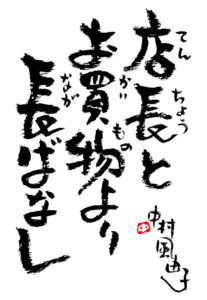 店長と
てんちょう
お買物より
かいもの
長ばなし
なが
中村風由子
中